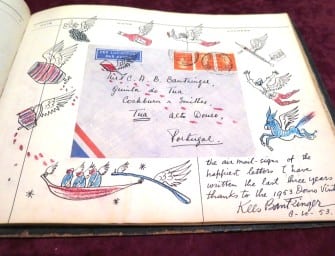 PAR AVION
Miss C. A. B. Bantzinger,
Quinta de Tua
Cockburn & Smithes,
Tua alto Douro,
Portugal.
the air mail-signs of the
happiest letters I have
written the last three years
thanks to the 1953 Douro Vint
Kees Bantzinger
8-10-53.